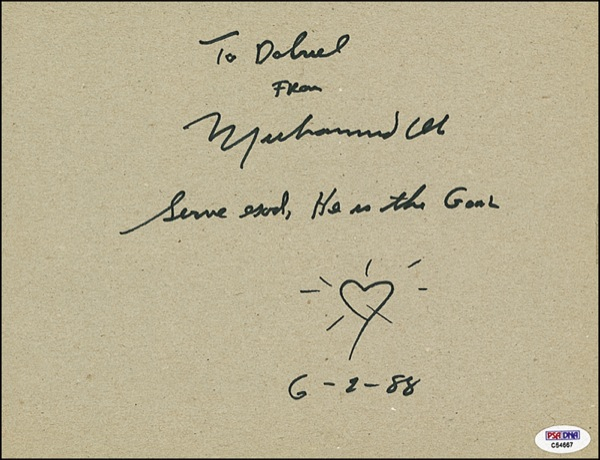 To
From
Muhammad Ali
Serve God, He is the Goal
6-2-88
PSA/DNA
C54667